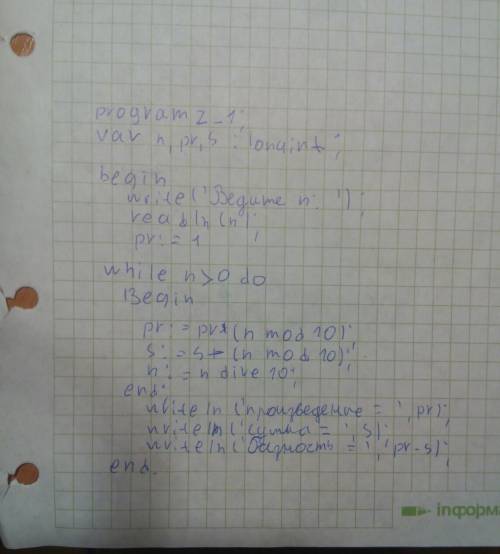 program z_1;
var n, pr, s : longint;
begin
write('Ведите n: ');
readln(n);
pr: = 1
while n>0 do
Begin
pr: = pr*(n mod 10);
s: = s+(n mod 10);
n: = n dive 10;
end;
writeln('произведение = ', pr);
writeln('сумма = ', s);
writeln(' = ', pr-s);
end.
інформа